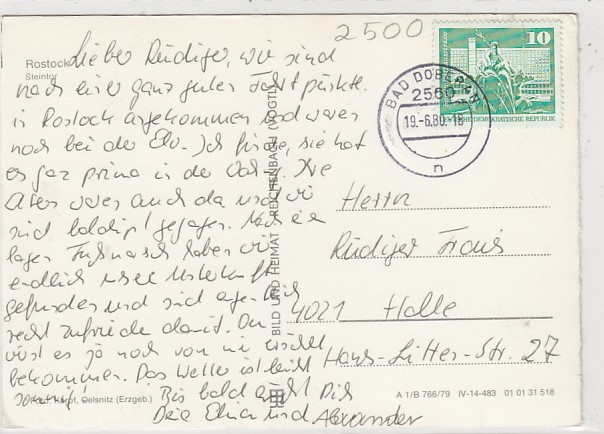 2500
Rostock
Steintor
Lieber Rüdiger, wir sind
nach einer ganz guten Fahrt pünktl.
in Rostock angekommen und waren
noch bei der Elv. Ich finde, sie hat
es ganz prima in der
waren auch da und wir
sind bald gegangen. Nach
langen Fußmarsch haben wir
endlich unsere Unterkunft
gefunden und sind eigentlich
recht zufrieden damit. Du
wirst es ja noch von mir
bekommen. Das Wetter ist leider
Bis bald Dich
Deine und Alexander
Foto: Karpf, Oelsnitz (Erzgeb.)
BILD UND HEIMAT REICHENBACH (VOGTL)
10
DEUTSCHE DEMOKRATISCHE REPUBLIK
BAD DOBERAN
2560
19.-6.80.-18
n
Herrn
Rüdiger
4021 Halle
Hans-Litten-Str. 27
A 1/B 766/79 IV-14-483 01 01 31 518